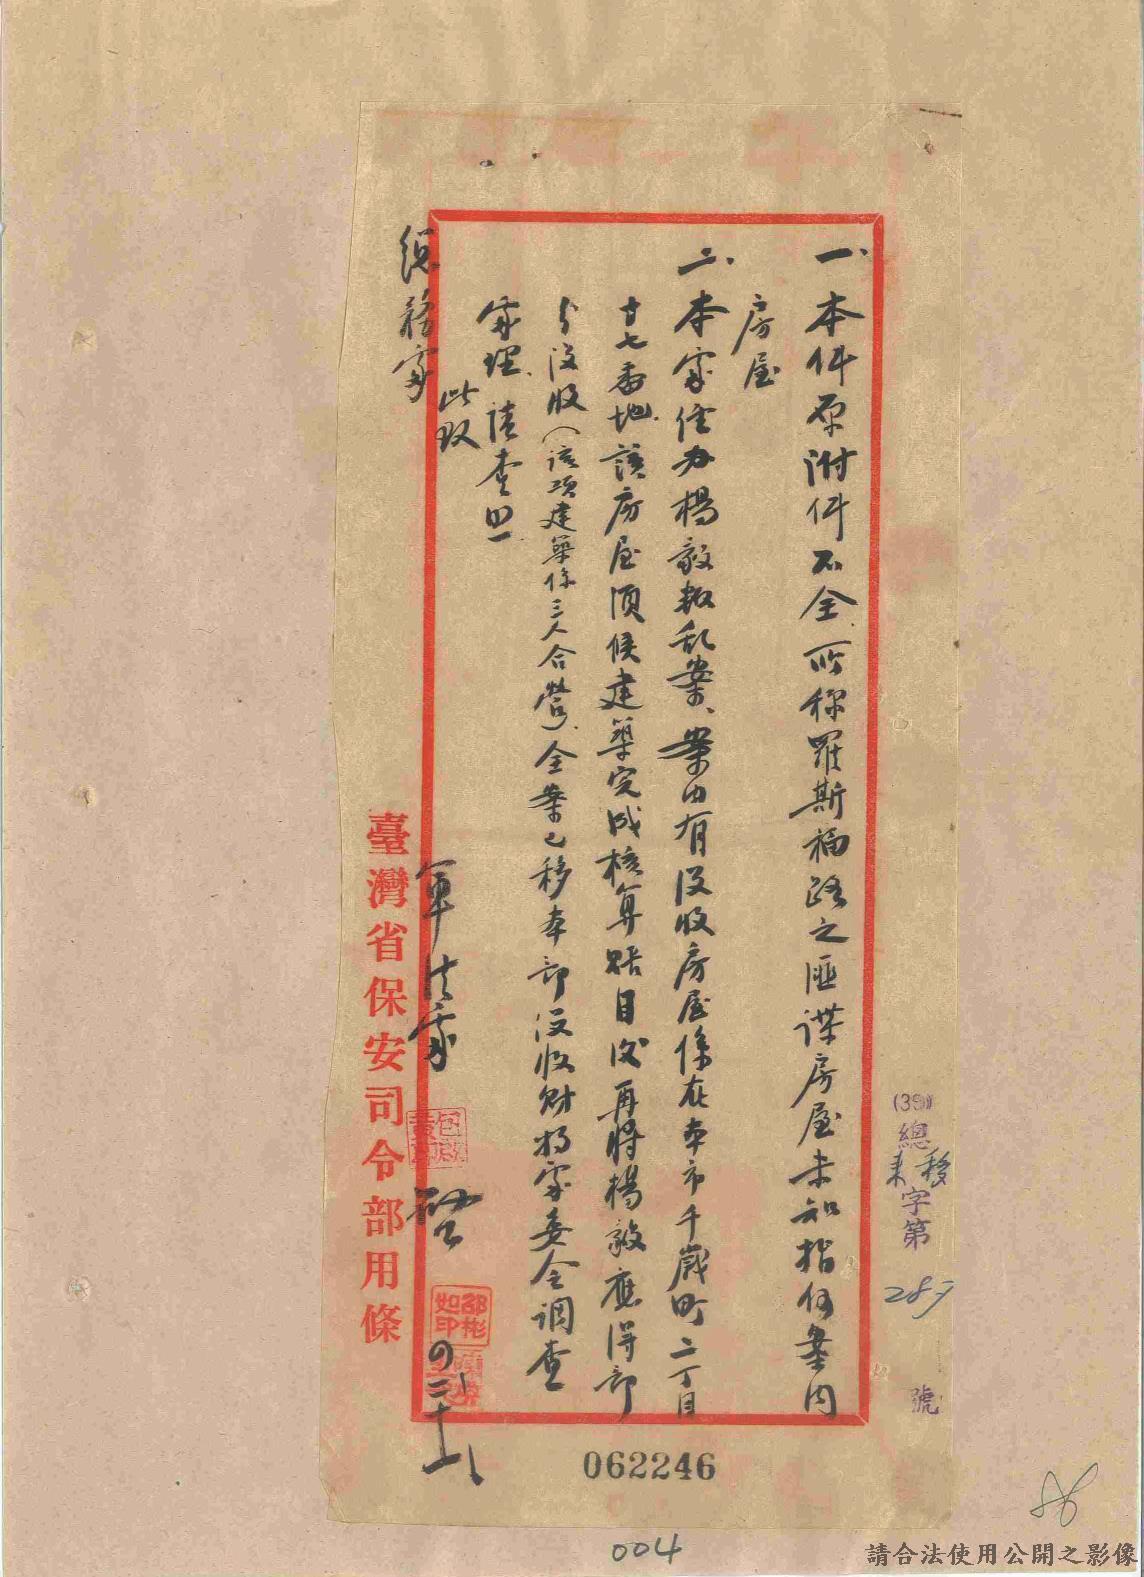 一、本件原附件不全、所称羅斯福路之匪諜房屋未知指何案内
房屋
二、本家住办楊毅叛乱案、案内有没收房屋係在本市千歲町二丁目
廿七番地.該房屋須候建築完成核算賬目後再將楊毅應得部
分没收(該項建築係三人合營)、全案已移本部没收財物處委会調查
處理、請查照
此致
總務處
軍法處
啓
四、二十八
臺灣省保安司令部用條
邵彬如印
(39)總
移來
字第
287
號
062246
86
004
請合法使用公開之影像